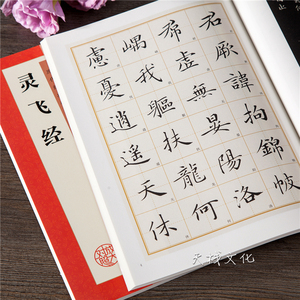 君厥諱拘錦帔
希虛無晏陽洛
嵎我軀扶龍何
慮憂逍遙天休
灵飞经
文化